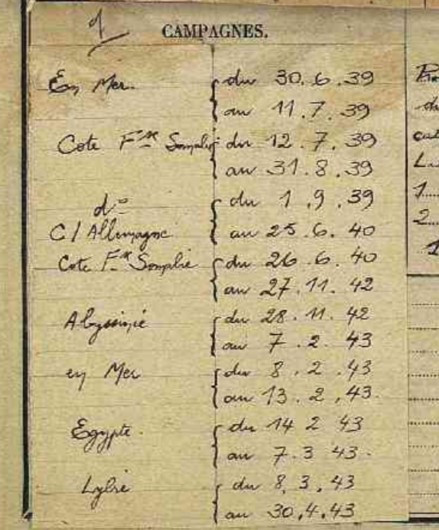 1
CAMPAGNES.
En Mer. du 30.6.39
au 11.7.39
Cote Fse Somalis du 12.7.39
au 31.8.39
do du 1.9.39
C/Allemagne au 25.6.40
Cote Fse Somalie du 26.6.40
au 27.11.42
Abyssinie du 28.11.42
au 7.2.43
en Mer du 8.2.43
au 13.2.43.
Egypte. du 14 2 43
au 7.3 43.
Lybie du 8.3.43
au 30.4.43
1
2
1